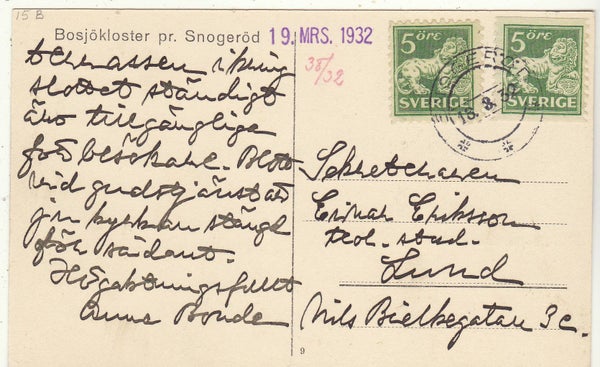 15 B
Bosjökloster pr. Snogeröd
19. MRS. 1932
38/32
5 ÖRE
SVERIGE
5 ÖRE
SVERIGE
18.3.32
terrassen i kring
slottet ständigt
äro tillgänglige
för besökare. Blott
vid gudstjänst är
jin kyrkan stängd
för sådant.
Högaktningsfullt
Anna Bonde
Sekreteraren
Einar Eriksson
teol. stud.
Lund
Nils Bielkegatan 3 c.
9